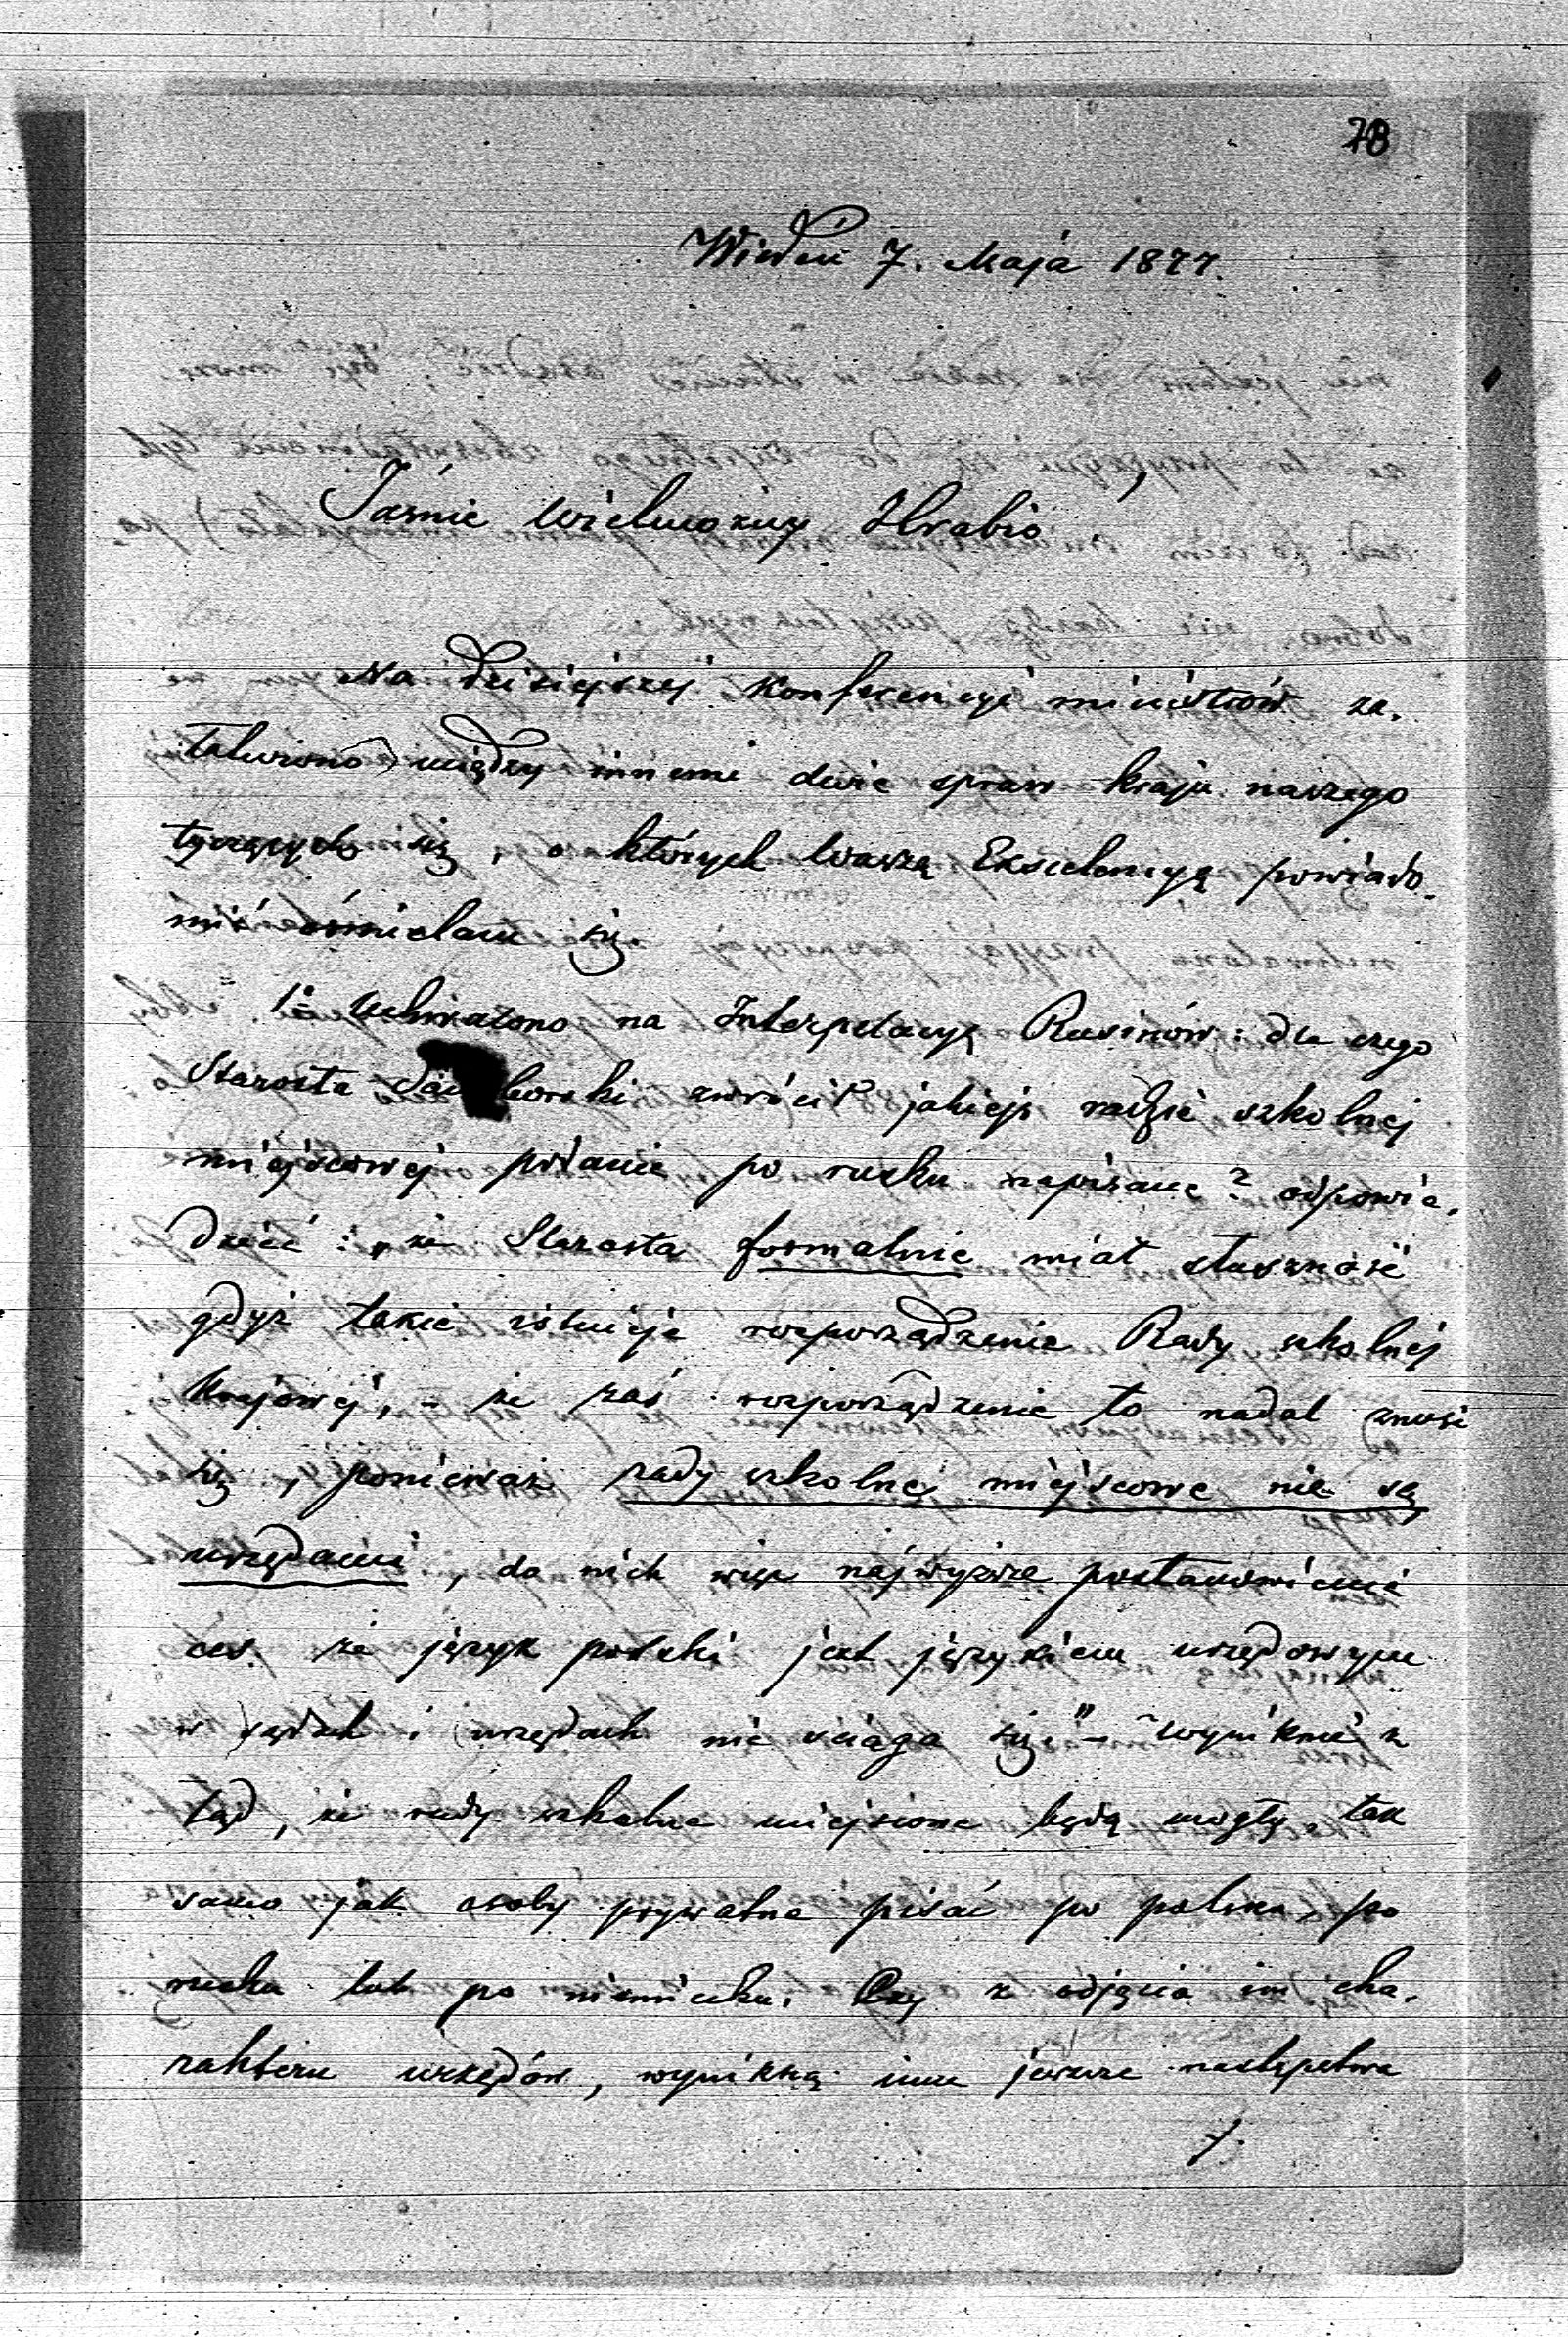 78
Wiedeń 7. Maja 1877.
Jaśnie Wielmożny Hrabio,
Na dzisiejszej konferencyi ministrów za-
łatwiono między innemi dwie spraw kraju naszego
tyczących się, o których Waszą Excelencyą powiado-
mić ośmielam się.
1º Uchwalono na Interpelacyą Rusinów: dla czego
Starosta Samborski zwrócił jakiejś radzie szkolnej
miejscowej podanie po rusku napisane? odpowie-
dzieć: „że Starosta formalnie miał słuszność
gdyż takie istnieje rozporządzenie Rady szkolnej
Krajowej, - że zaś rozporządzenie to nadal znosi
się, ponieważ rady szkolnej miejscowe nie są
urzędami, do nich więc najwyższe postanowienie
ces. że język polski jest językiem urzędowym
w sądach i urzędach nie ściąga się" - wyniknie z
tąd, że rady szkolne miejscowe będą mogły tak
samo jak osoby prywatne pisać po polsku, po
rusku lub po niemiecku. Czy z odjęcia im cha-
rakteru urzędów, wynikną inne jeszcze następstwa
./.